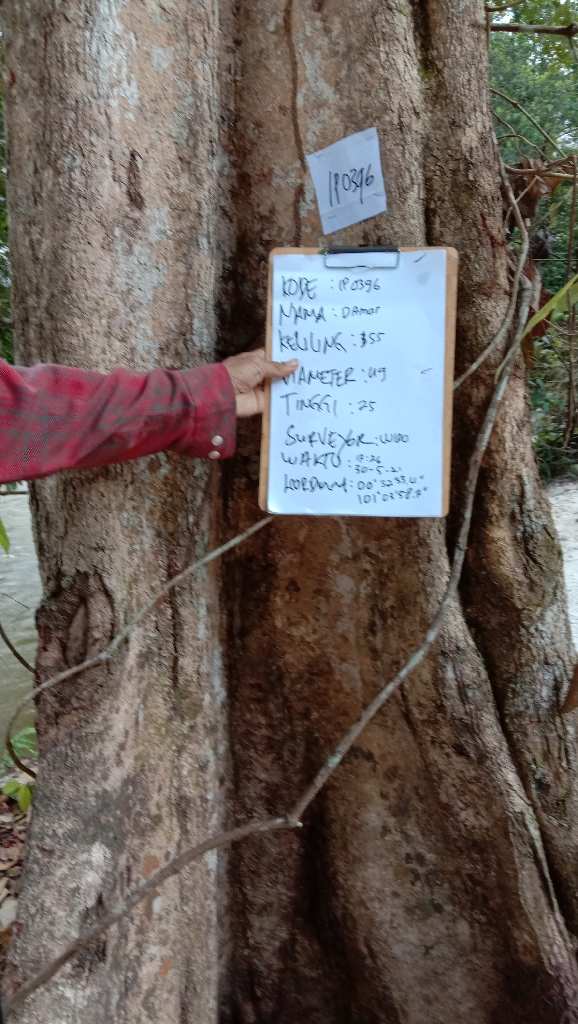 IP0396
KODE : IP0396
NAMA : DAMAR
KELILING : 155
DIAMETER : 49
TINGGI : 25
SURVEYOR : WIDO
WAKTU : 13:26
30-5-21
KOORDINAT : 00°32'53,4"
101°03'58.8"